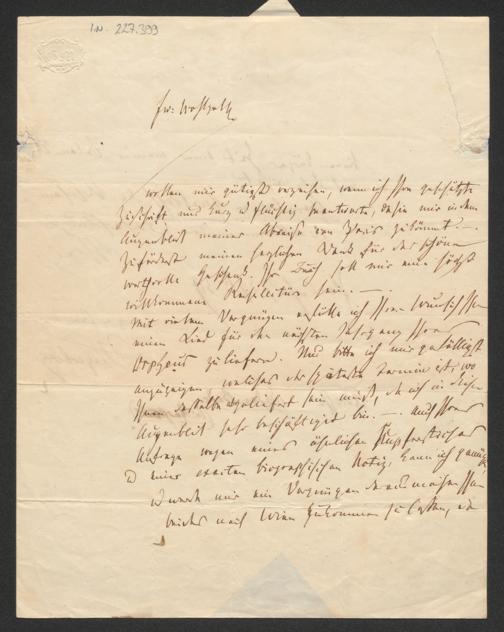 I.N. 227.399
Ew: Wohlgeb.
wollen mir gütigst verzeihen, wenn ich Ihre geschätzte
Zuschrift nur kurz u flüchtig beantworte, da sie mir in dem
Augenblick meiner Abreise von Paris zukömmt. —
Zuförderst meinen herzlichen Dank für das schöne
werthvolle Geschenk. Ihr Buch soll mir eine höchst
willkommene Reiselectüre sein. —
Mit vielem Vergnügen erfülle ich Ihren Wunsch Ihnen
einen Lied für den nächsten Jahrgang Ihres
Orpheus zu liefern. Nur bitte ich mir gefälligst
anzuzeigen, welches der späteste Termin ist, wo
Ihnen dasselbe geliefert sein muß, da ich in diesem
Augenblick sehr beschäftigt bin. — Auf Ihre
Anfrage wegen eines ähnlichen Kupferstiches
u einer exacten biographischen Notiz, kann ich
u werde mir ein Vergnügen daraus machen Ihnen
beides nach Wien zukommen zu lassen,